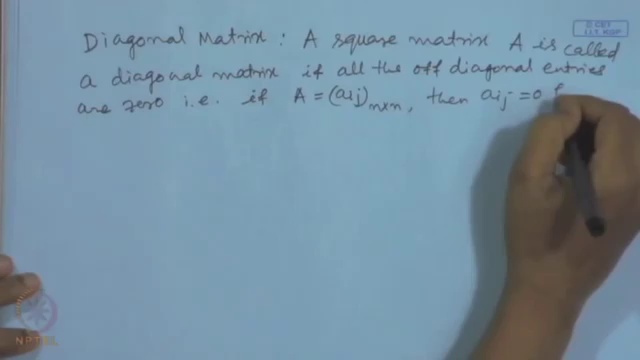 © CET
I.I.T. KGP
Diagonal Matrix : A square matrix A is called
a diagonal matrix if all the off diagonal entries
are zero i.e. if A = (aij)n×n, then aij = 0 f
NPTEL